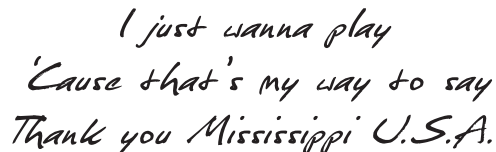 I just wanna play
'Cause that's my way to say
Thank you Mississippi U.S.A.